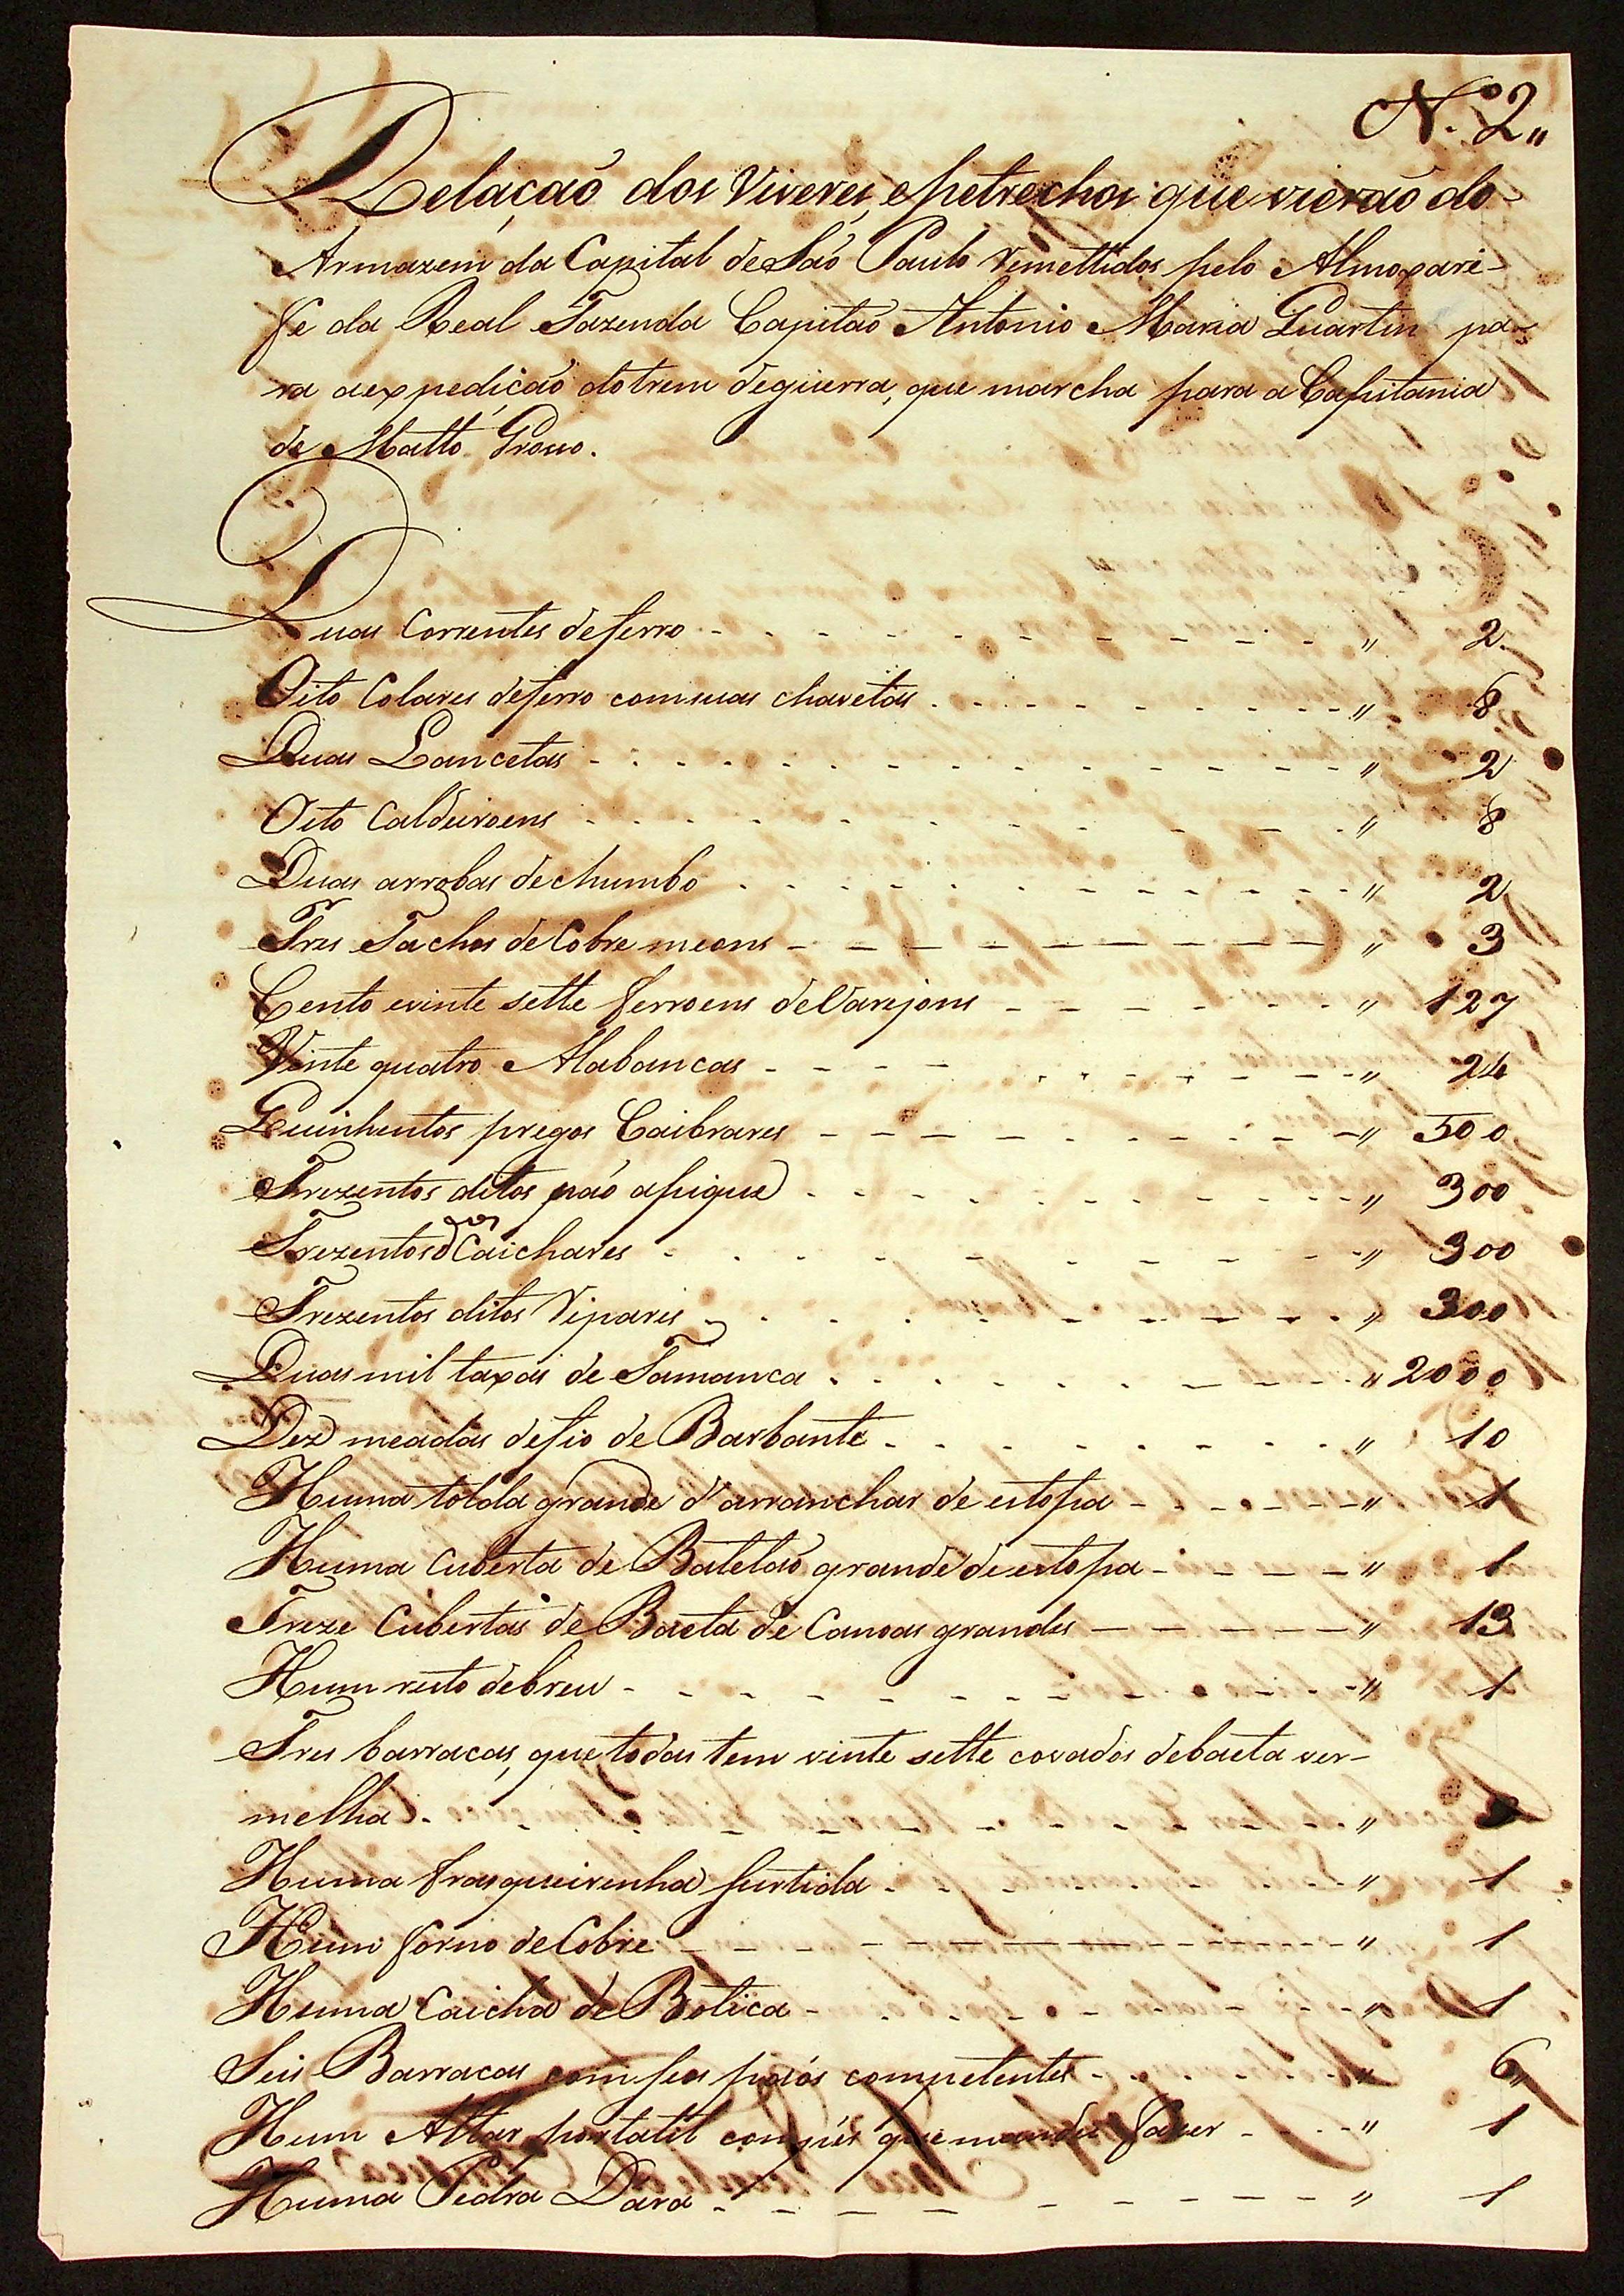 N.º 2,,
Relaçaõ dos Viveres, epetrechos que vieraõ do
Armazem da Capital de Saõ Paulo remettidos pelo Almoxari-
fe da Real Fazenda Capitaõ Antonio Maria Quartin pa-
ra aexpediçaõ dotrem deguerra, que marcha para a Capitania
de Matto Grosso.
Duas Correntes deferro - - - - - - - - - - - - " 2
Oito Colares deferro comsuas chavetas - - - - - - - - - " 8
Duas Lancetas - - - - - - - - - - - - - " 2
Oito Caldeiroens - - - - - - - - - - - - " 8
Duas arrobas dechumbo - - - - - - - - - - - - " 2
Tres Tachos deCobre meons - - - - - - - - - - " 3
Cento evinte sette ferroens deVarejons - - - - - - - " 127
Vinte quatro Alabancas - - - - - - - - - - - " 24
Quinhentos pregos Caibrares - - - - - - - - - - " 500
Trezentos ditos páo apique - - - - - - - - - " 300
Trezentos dos Caichares - - - - - - - - - - " 300
Trezentos ditos Ripares - - - - - - - - - - " 300
Duas mil taxas de Tamanca - - - - - - - - " 2000
Dez meadas defio de Barbante - - - - - - - - " 10
Huma tolda grande d'arranchar de estopa - - - - - - " 1
Huma Cuberta de Batelaõ grande de estopa - - - - - " 1
Treze Cubertas de Baeta de Canoas grandes - - - - - " 13
Hum resto debreu - - - - - - - - - - - " 1
Tres barracas, que todas tem vinte sette covados debaeta ver-
melha - - - - - - - - - - - - "
Huma frasqueirinha surtida - - - - - - - " 1
Hum forno deCobre - - - - - - - - - - " 1
Huma Caicha de Botica - - - - - - - - " 1
Seis Barracas com seos páos competentes - - - - - " 6,,
Hum Altar portatil compés que mandei fazer - - - - " 1
Huma Pedra Dara - - - - - - - - - - " 1